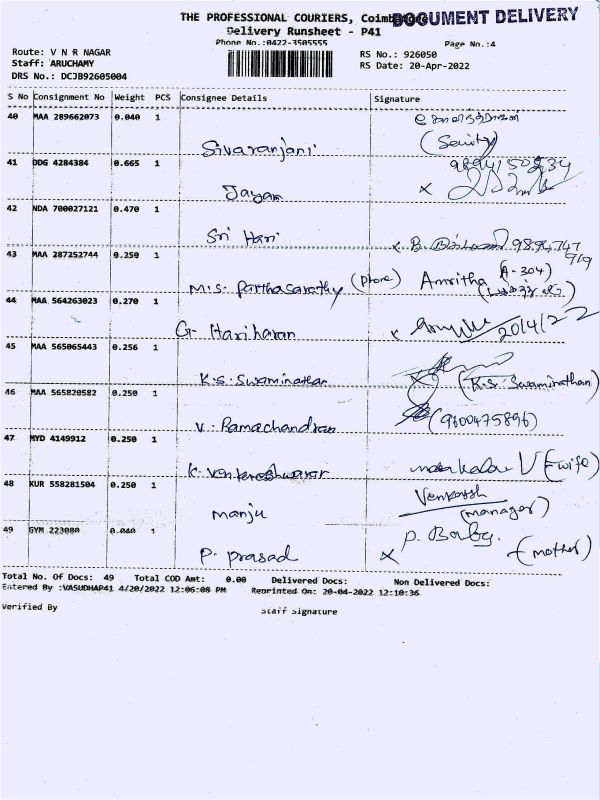 THE PROFESSIONAL COURIERS, Coimbatore
DOCUMENT DELIVERY
Delivery Runsheet - P41
Phone No.:0422-3505555
Page No.:4
Route: V N R NAGAR
RS No.: 926050
Staff: ARUCHAMY
RS Date: 20-Apr-2022
DRS No.: DCJB92605004
S No Consignment No Weight PCS Consignee Details Signature
40 MAA 289662073 0.040 1
Sivaranjani (Security)
41 DDG 4284384 0.665 1
9894150234
Jayam x
42 NDA 700027121 0.470 1
Sri Hari x B. 9894747
919
43 MAA 287252744 0.250 1
M.S. Parthasarathy (Phone) Amritha (A-304)
44 MAA 564263023 0.270 1
G. Hariharan x 20/4/22
45 MAA 565065443 0.256 1
K.S. Swaminathan (K.S. Swaminathan)
46 MAA 565820582 0.250 1
V. Ramachandran (9600475896)
47 MYD 4149912 0.250 1
K. Venkateshwarar V (wife)
48 KUR 558281504 0.250 1
Manju Venkatesh (manager)
49 GYM 223080 0.040 1
P. Prasad x P. Baby. (mother)
Total No. Of Docs: 49 Total COD Amt: 0.00 Delivered Docs: Non Delivered Docs:
Entered By :VASUDHAP41 4/20/2022 12:06:08 PM Reprinted On: 20-04-2022 12:10:36
Verified By Staff Signature